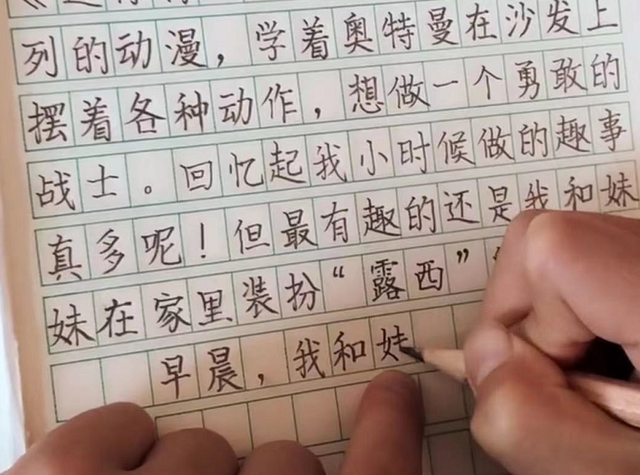 列的动漫，学着奥特曼在沙发上
摆着各种动作，想做一个勇敢的
战士。回忆起我小时候做的趣事
真多呢！但最有趣的还是我和妹
妹在家里装扮“露西”
早晨，我和妹